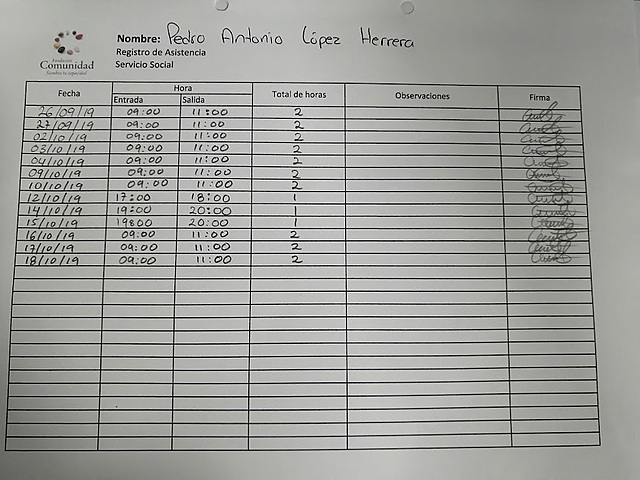 Nombre: Pedro Antonio López Herrera
Fundación
Comunidad
Registro de Asistencia
Servicio Social
Fecha Hora Total de horas Observaciones Firma
Entrada Salida
26/09/19 09:00 11:00 2
27/09/19 09:00 11:00 2
02/10/19 09:00 11:00 2
03/10/19 09:00 11:00 2
04/10/19 09:00 11:00 2
09/10/19 09:00 11:00 2
10/10/19 09:00 11:00 2
12/10/19 17:00 18:00 1
14/10/19 19:00 20:00 1
15/10/19 19800 20:00 1
16/10/19 09:00 11:00 2
17/10/19 09:00 11:00 2
18/10/19 09:00 11:00 2